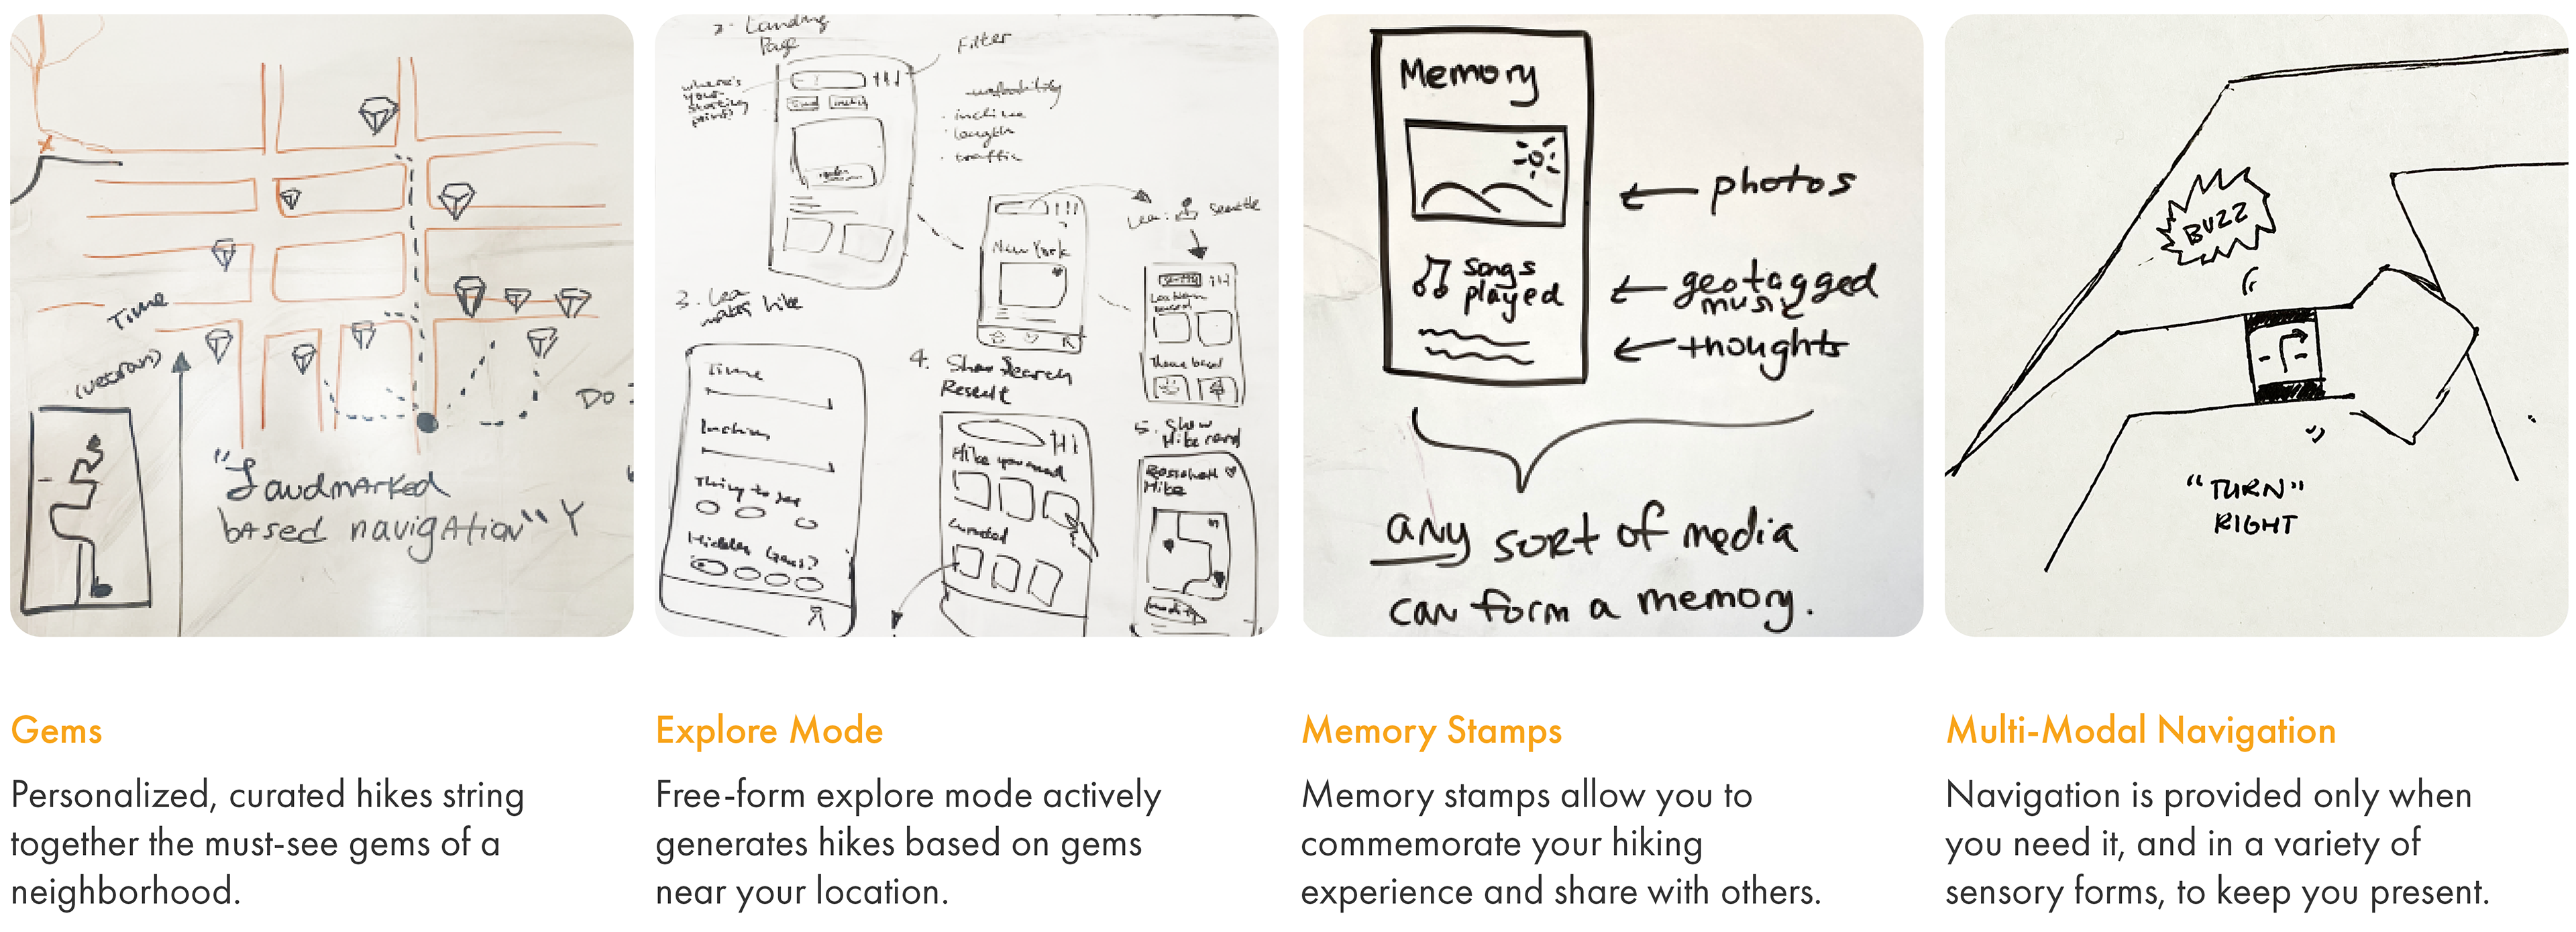 Time
(vectors)
Do
"Landmarked
based navigation" Y
2. Landing
Page
Filter
where's
your
starting
point?
walkability
· incline
· length
· traffic
New York
Lea:
Seattle
Seattle
Location
based
Theme based
3. Lea
makes hike
Time
Incline
Thing to see
Hidden Gems?
4. Show Search
Result
Hike you need
Curated
5. Show
Hike card
Hike
Memory
photos
songs
played
geotagged
music
thoughts
any sort of media
can form a memory.
BUZZ
"TURN"
RIGHT
Gems
Personalized, curated hikes string
together the must-see gems of a
neighborhood.
Explore Mode
Free-form explore mode actively
generates hikes based on gems
near your location.
Memory Stamps
Memory stamps allow you to
commemorate your hiking
experience and share with others.
Multi-Modal Navigation
Navigation is provided only when
you need it, and in a variety of
sensory forms, to keep you present.